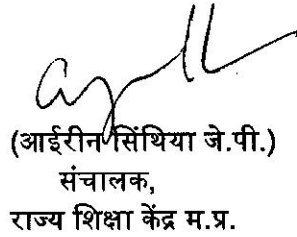 (आईरीन सिंथिया जे.पी.)
संचालक,
राज्य शिक्षा केंद्र म.प्र.